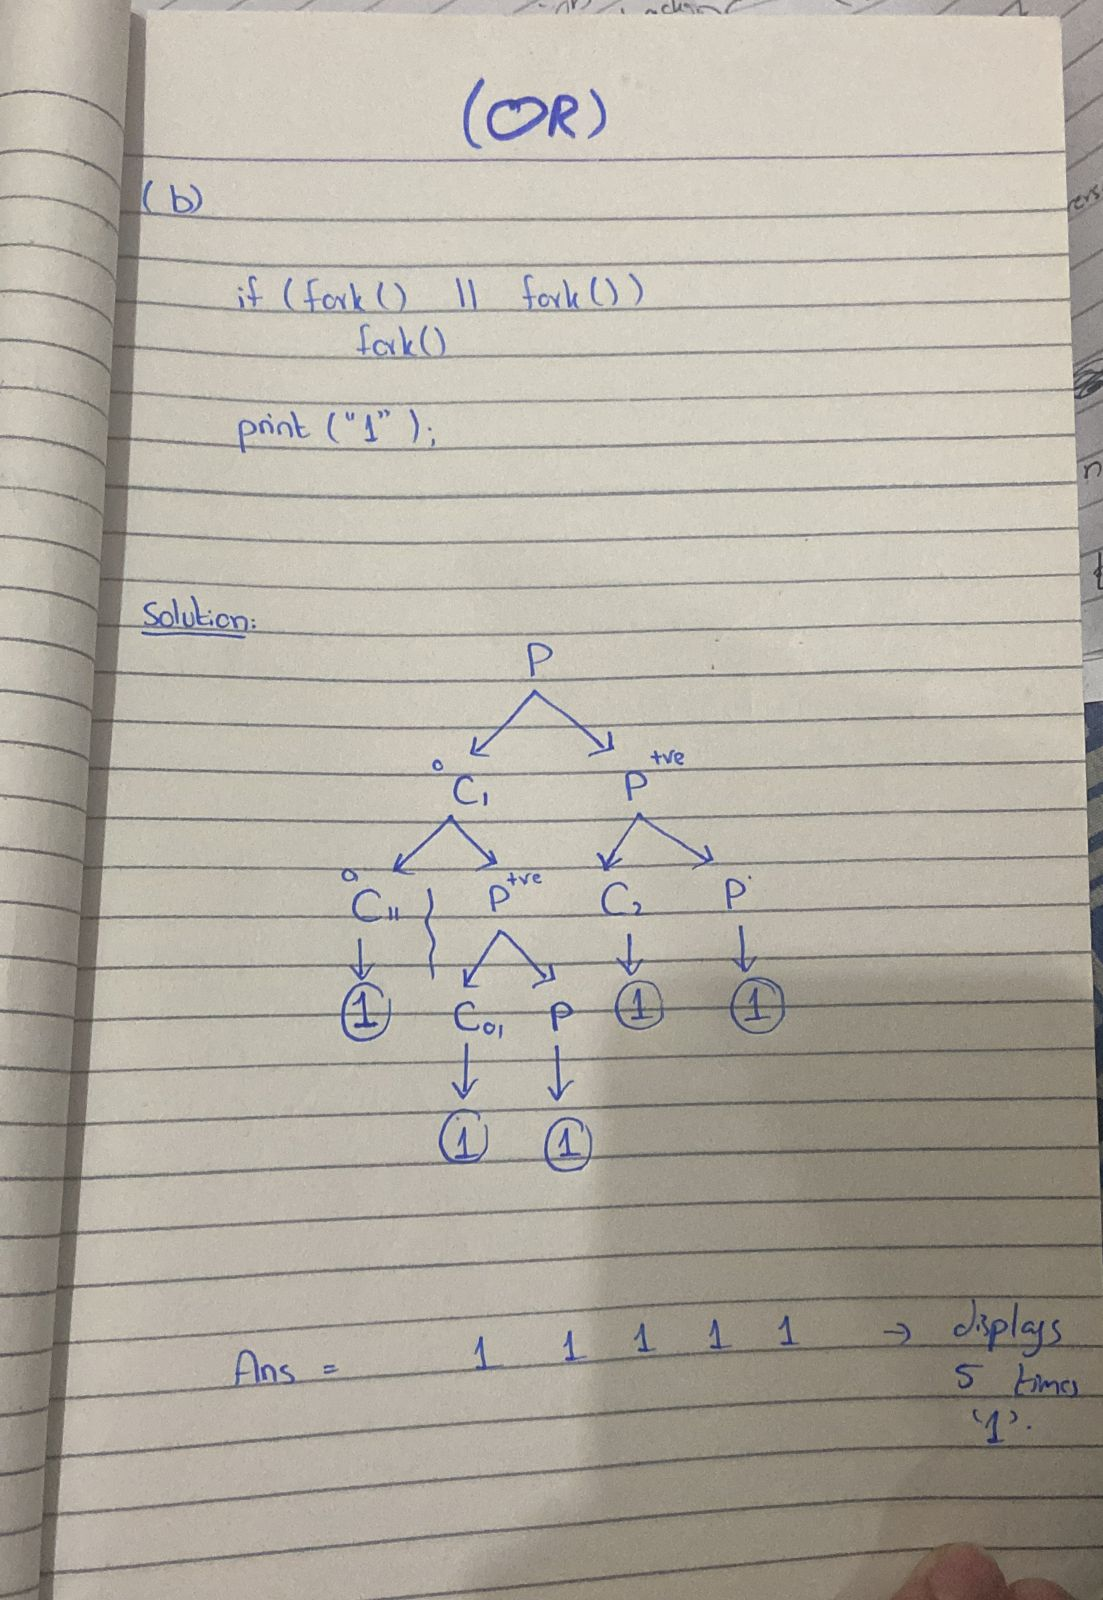 (OR)
(b)
if (fork() || fork())
fork()
print ("1");
Solution:
P
0 C₁ P +ve
0 C₁₁ P +ve C₂ P
1 C₀₁ P 1 1
1 1
Ans = 1 1 1 1 1 → displays
5 times
'1'.